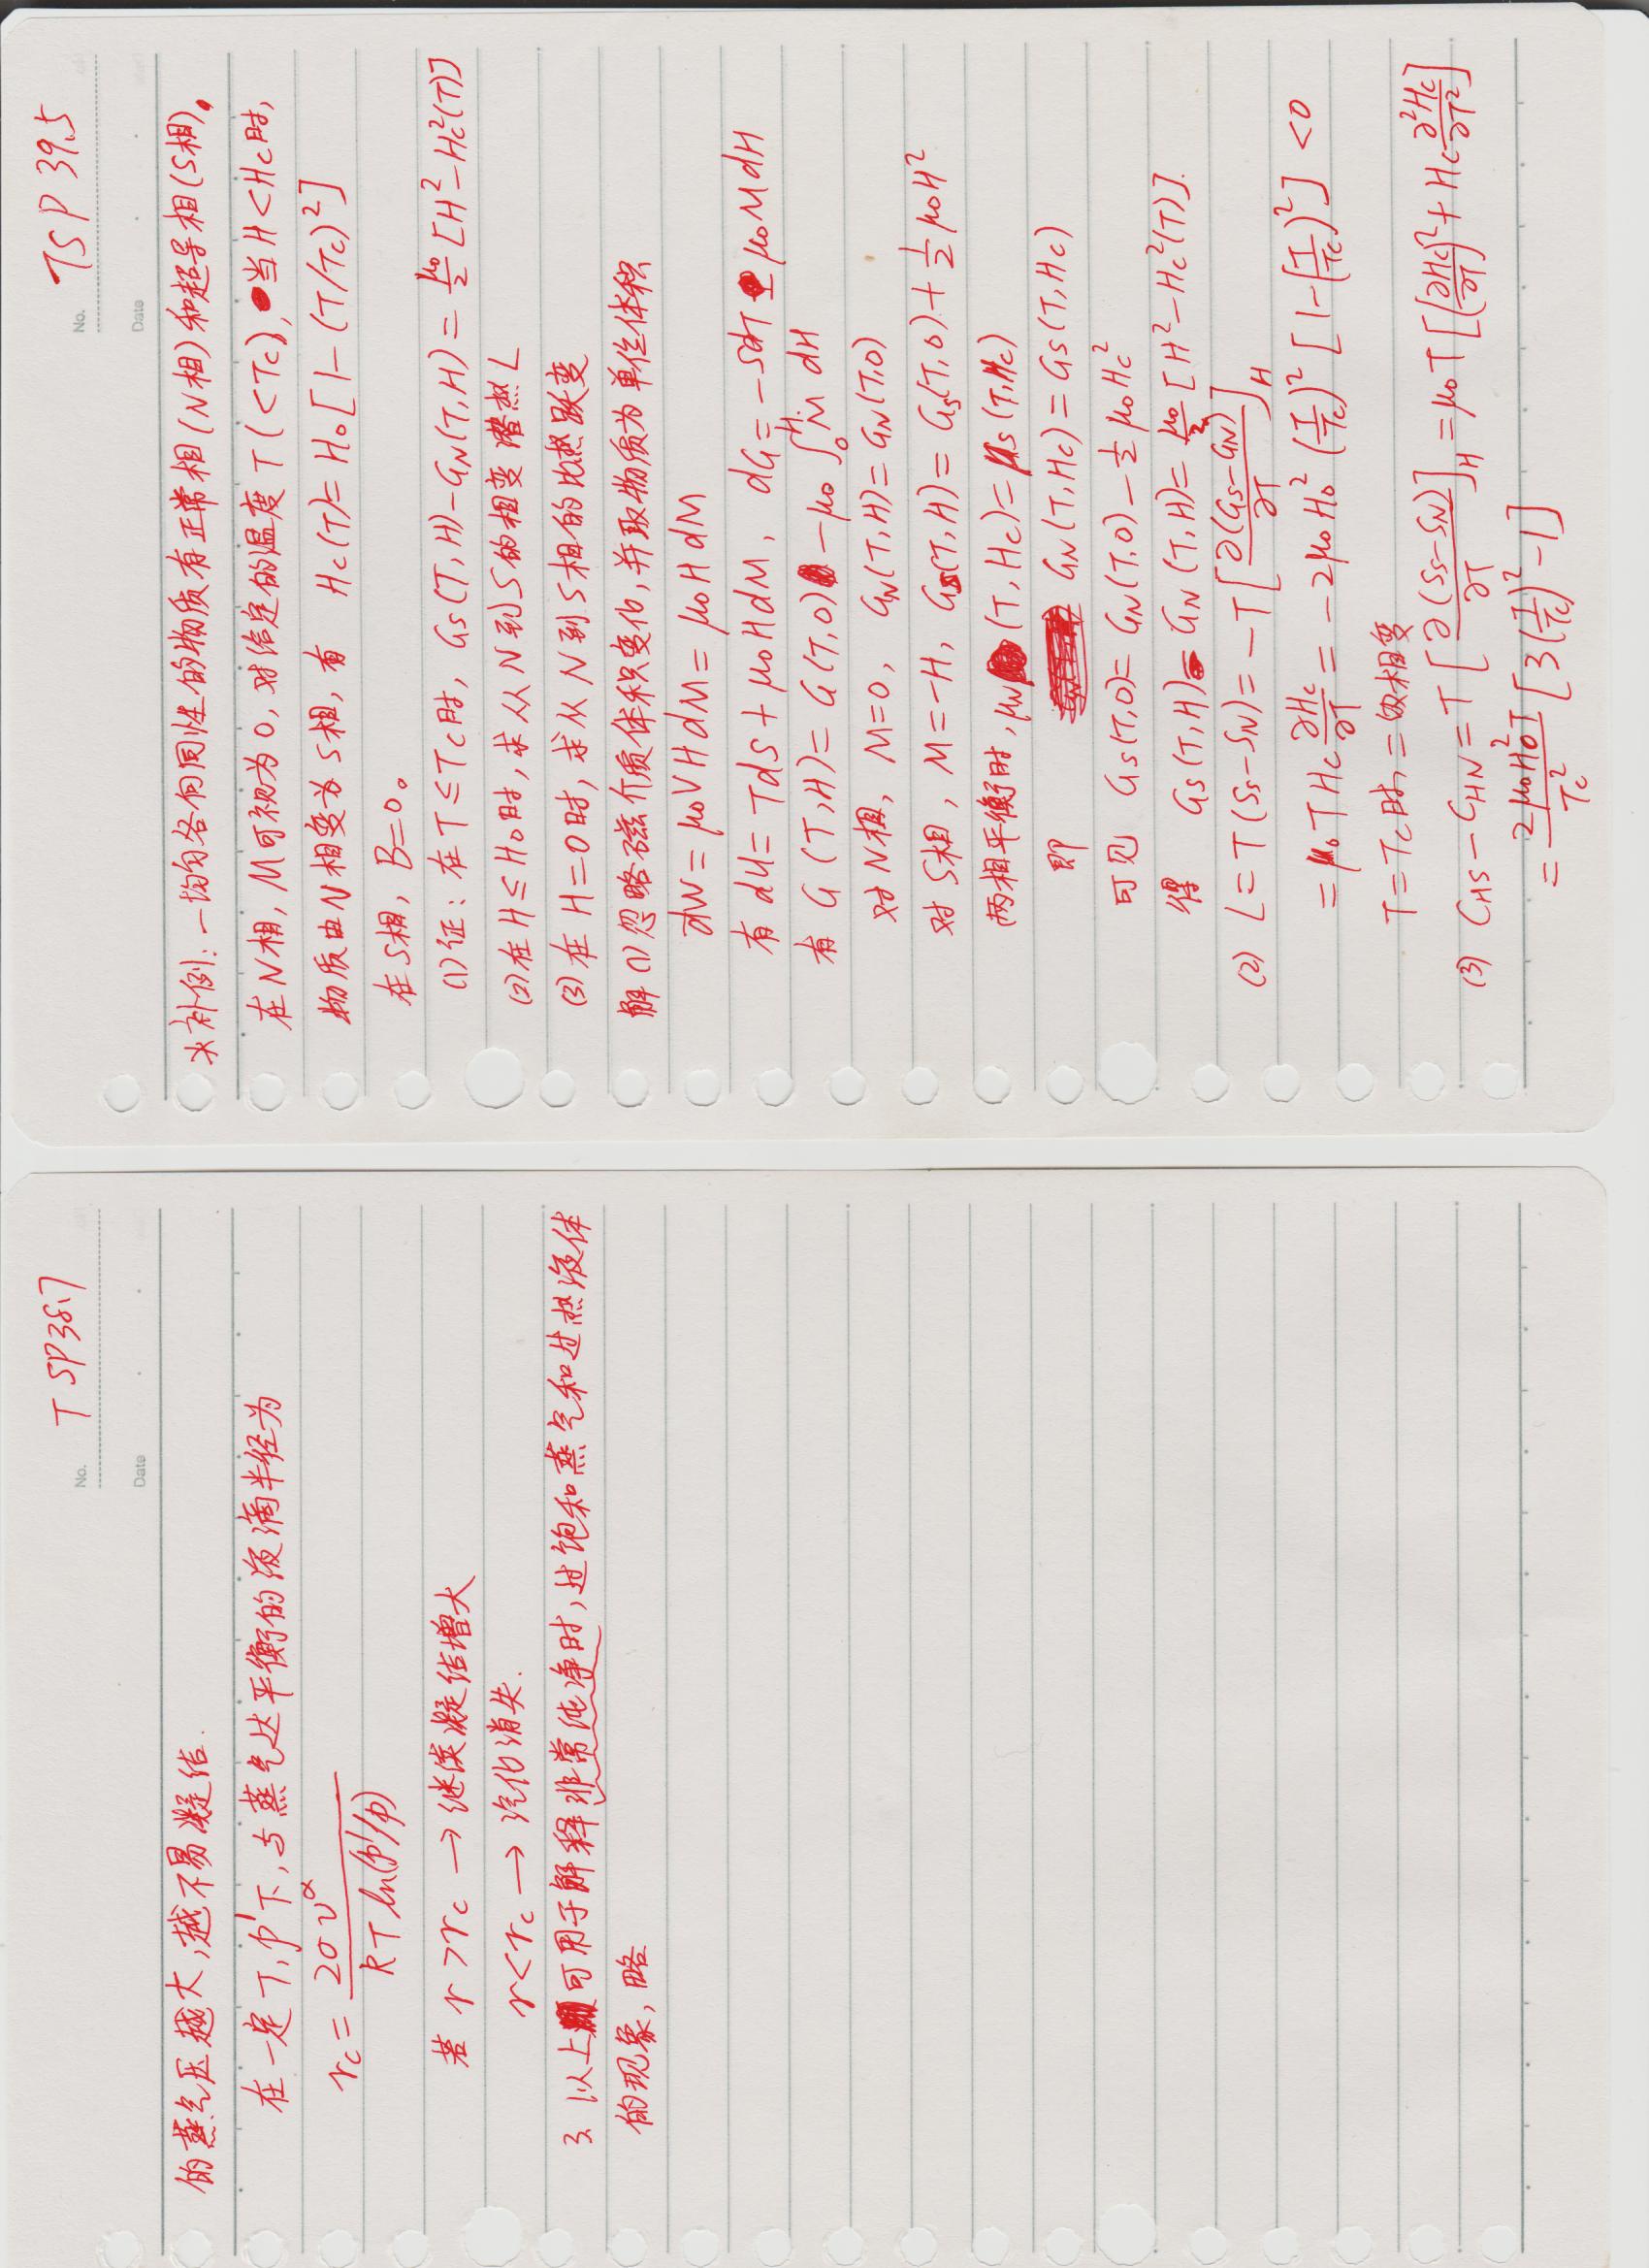 No. TSP38.7
Date
的蒸气压越大,越不易凝结.
在一定T,p'下,与蒸气达平衡的液滴半径为
r_c = 2σv^α / RT ln(p'/p)
若 r > r_c → 继续凝结增大
r < r_c → 汽化消失.
3. 以上可用于解释非常纯净时,过饱和蒸气和过热液体
的现象,略
No. TSP39.5
Date
补例: 一均匀各向同性的物质有正常相(N相)和超导相(S相)。
在N相, M可视为0, 对给定的温度T(<Tc), 当H<Hc时,
物质由N相变为S相, 有 Hc(T)=H₀[1-(T/Tc)²]
在S相, B=0。
(1)证: 在T≤Tc时, Gs(T,H)-G_N(T,H)=μ₀/2 [H²-Hc²(T)]
(2)在H≤H₀时, 求从N到S的相变潜热L
(3)在H=0时, 求从N到S相的比热跃变
解(1)忽略磁介质体积变化, 并取物质为单位体积
đW=μ₀VHdM=μ₀HdM
有 dU=TdS+μ₀HdM, dG=-SdT-μ₀MdH
有 G(T,H)=G(T,0)-μ₀∫₀^H M dH
对N相, M=0, G_N(T,H)=G_N(T,0)
对S相, M=-H, Gs(T,H)=Gs(T,0)+½μ₀H²
两相平衡时, μ_N(T,Hc)=μs(T,Hc)
即 G_N(T,Hc)=Gs(T,Hc)
可见 Gs(T,0)=G_N(T,0)-½μ₀Hc²
得 Gs(T,H)-G_N(T,H)=μ₀/2 [H²-Hc²(T)].
(2) L=T(Ss-S_N)=-T[∂(Gs-G_N)/∂T]_H
=μ₀THc ∂Hc/∂T=-2μ₀H₀²(T/Tc)²[1-(T/Tc)²]<0
T=Tc时, 二级相变
(3) C_HS-C_HN=T[∂(Ss-S_N)/∂T]_H=μ₀T[(∂Hc/∂T)²+Hc ∂²Hc/∂T²]
=2μ₀H₀²T/Tc² [3(T/Tc)²-1]